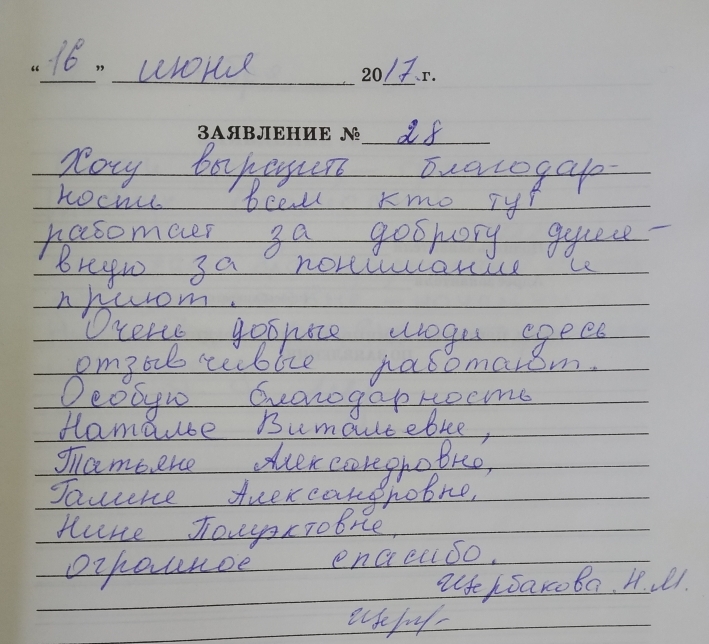 "16" июня 2017 г.
ЗАЯВЛЕНИЕ № 28
Хочу выразить благодар-
ность всем кто тут
работает за доброту душе-
вную за понимание и
приют.
Очень добрые люди сдесь
отзывчивые работают.
Особую благодарность
Наталье Витальевне,
Татьяне Александровне,
Галине Александровне,
Нине Полуэктовне,
огромное спасибо.
Щербакова Н.М.